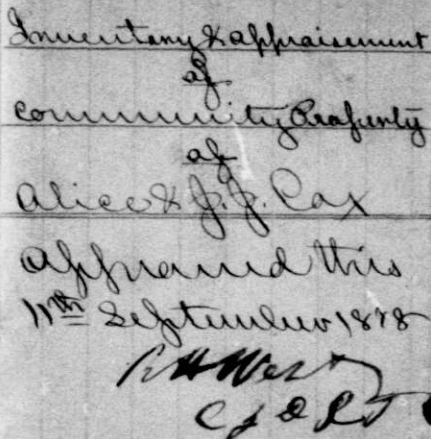 Inventory & appraisement
of
community Property
of
Alice & J. J. Cox
appraised this
11th September 1878